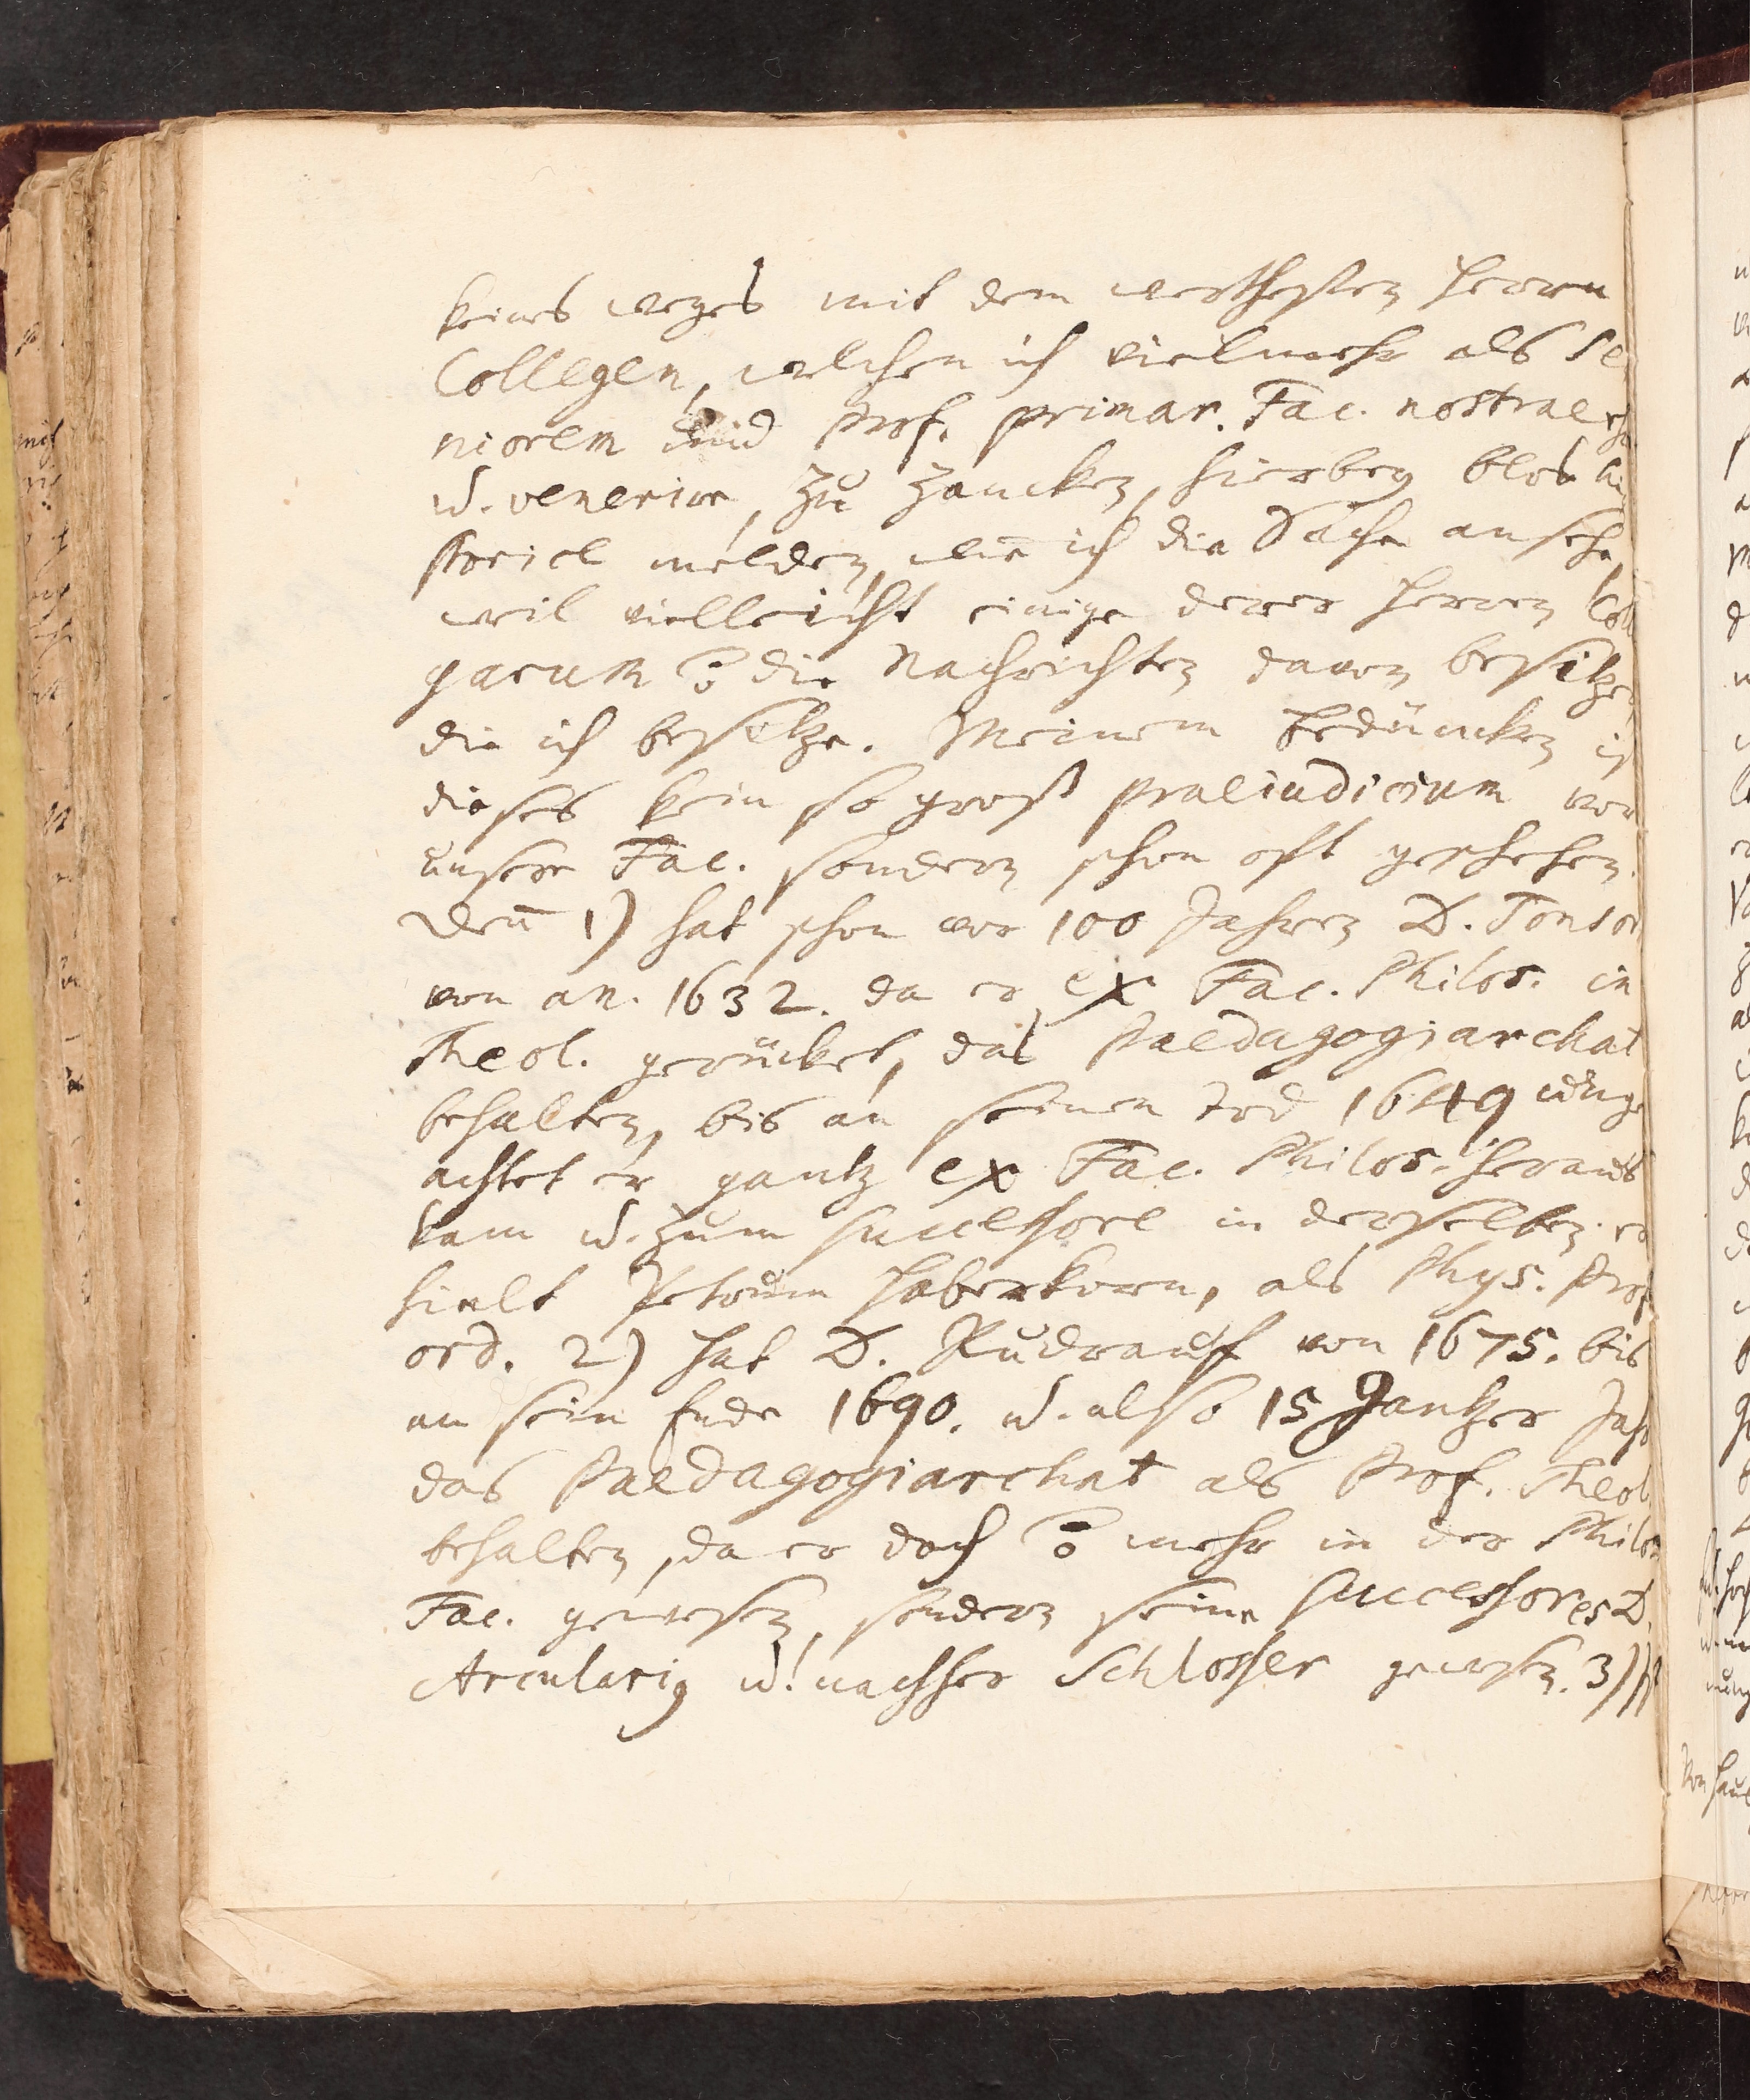 keines weges mit dem werthesten Herrn
Collegen, welchen ich vielmehr als Se
niorem und Prof. primar. Fac. nostrae
u. venerire, zu zancken, hierbey blos hi
storice melden, wie ich die Sache ansehe,
weil vielleicht einige derer Herren Coll
garum die Nachrichten davon besitzen,
die ich besitze. Meinem Bedüncken ist
dieses kein so groß praeiudicium vor
unsere Fac. sondern schon oft geschehen.
Den̄ 1) hat schon vor 100 Jahren D. Tonsor
von an. 1632. da er ex Fac. Philos. in
Theol. gerücket, das Paedagogiarchat
behalten, bis an seinen Tod 1649 unge
achtet er gantz ex Fac. Philos. heraus
kam u. zum successore in derselben er
hielt Petrum Haberkorn, als Phys. Prof
ord. 2) hat D. Rudrauff von 1675. bis
an sein Ende 1690. u. also 15 gantzer Jahr
das Paedagogiarchat als Prof. Theol.
behalten, da er doch mehr in der Philos
Fac. gewesen, sondern seine Successores D.
Arcularig u. nachher Schlosser gewesen. 3)